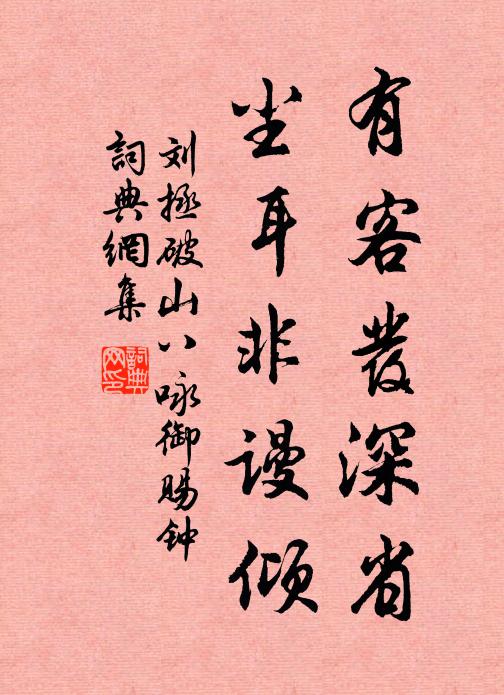 有客发深省
尘耳非谩倾
刘拯破山八咏御赐钟
詞典網集
詞典
网印